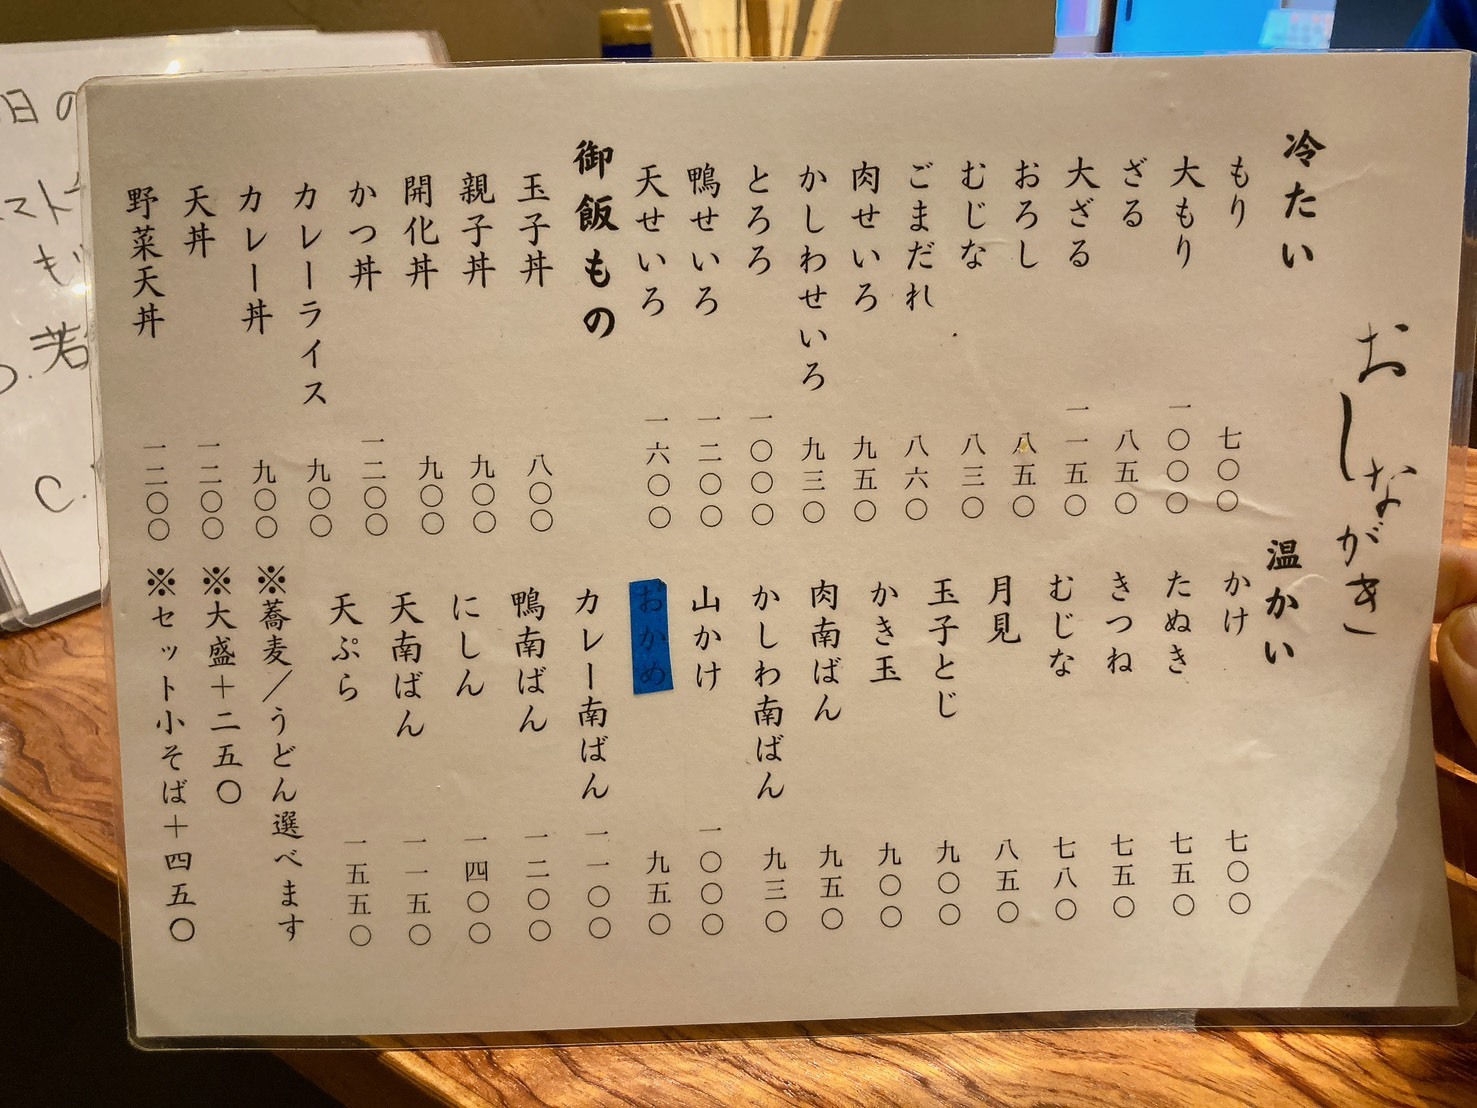 おしながき
冷たい
もり 七〇〇
大もり 一〇〇〇
ざる 八五〇
大ざる 一一五〇
おろし 八五〇
むじな 八三〇
ごまだれ 八六〇
肉せいろ 九五〇
かしわせいろ 九三〇
とろろ 一〇〇〇
鴨せいろ 一二〇〇
天せいろ 一六〇〇
御飯もの
玉子丼 八〇〇
親子丼 九〇〇
開化丼 九〇〇
かつ丼 一二〇〇
カレーライス 九〇〇
カレー丼 九〇〇
天丼 一二〇〇
野菜天丼 一二〇〇
温かい
かけ 七〇〇
たぬき 七五〇
きつね 七五〇
むじな 七八〇
月見 八五〇
玉子とじ 九〇〇
かき玉 九〇〇
肉南ばん 九五〇
かしわ南ばん 九三〇
山かけ 一〇〇〇
おかめ 九五〇
カレー南ばん 一一〇〇
鴨南ばん 一二〇〇
にしん 一四〇〇
天南ばん 一一五〇
天ぷら 一五五〇
※蕎麦／うどん選べます
※大盛＋二五〇
※セット小そば＋四五〇
日の